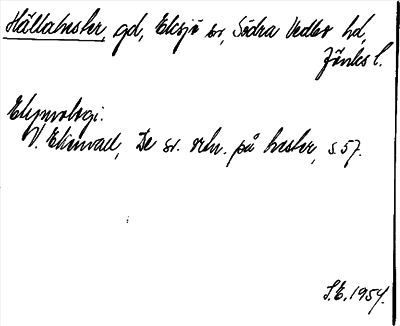 Hällahester, gd, Eksjö sn, Södra Vedbo hd,
Jönk. l.
Etymologi:
V. Ekenvall, De sv. ortn. på hester, s. 57.
S.E. 1954.